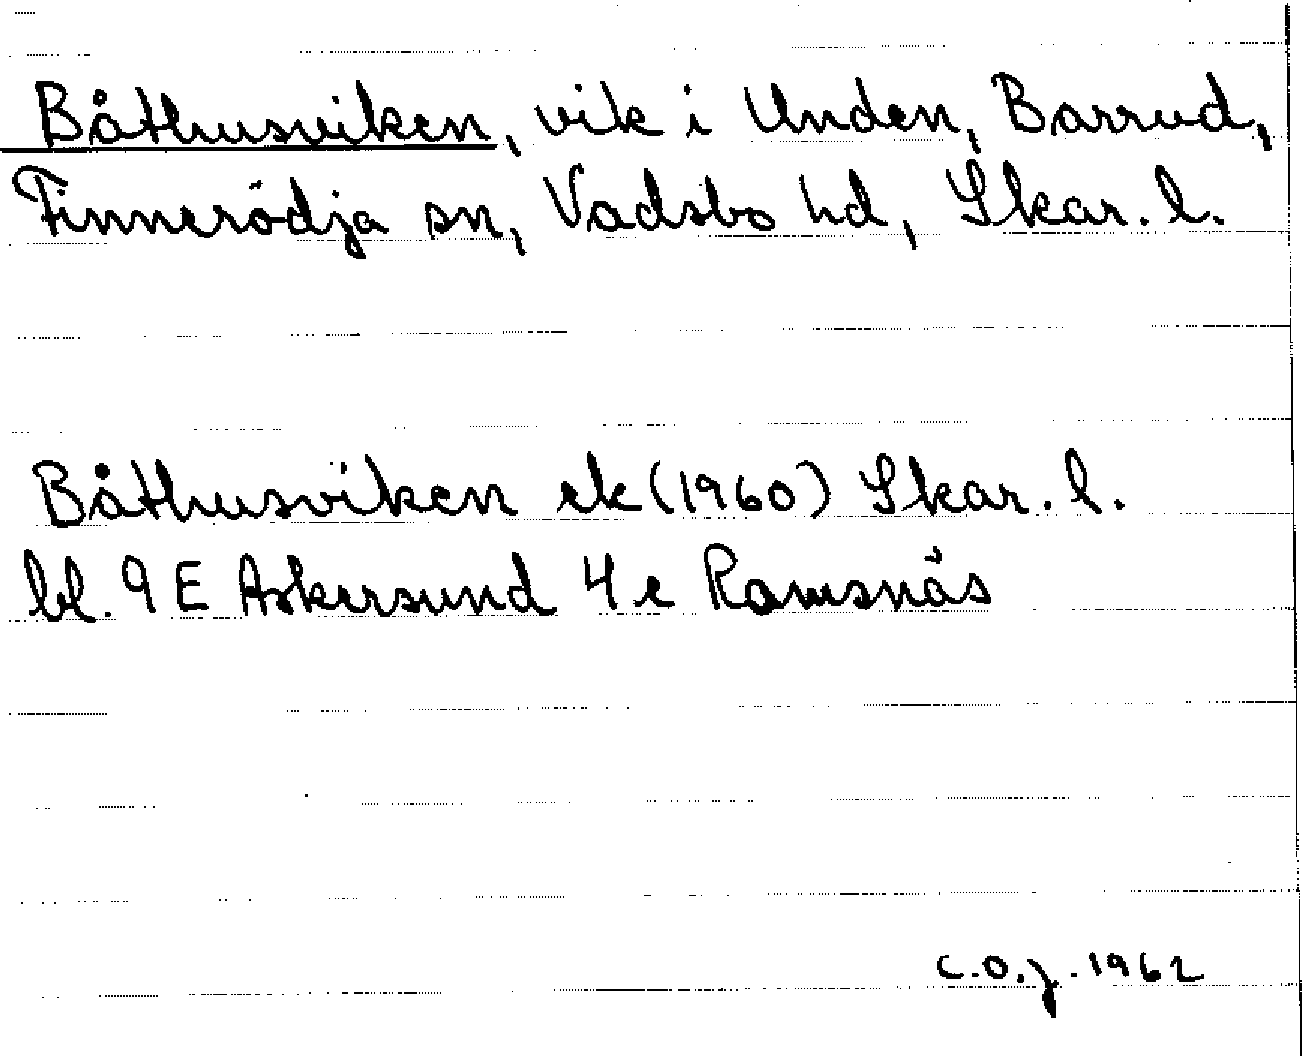 Båthusviken, vik i Unden, Barrud,
Finnerödja sn, Vadsbo hd, Skar. l.
Båthusviken ek (1960) Skar. l.
bl. 9 E Askersund 4 e Ramsnäs
C.O.J. 1962